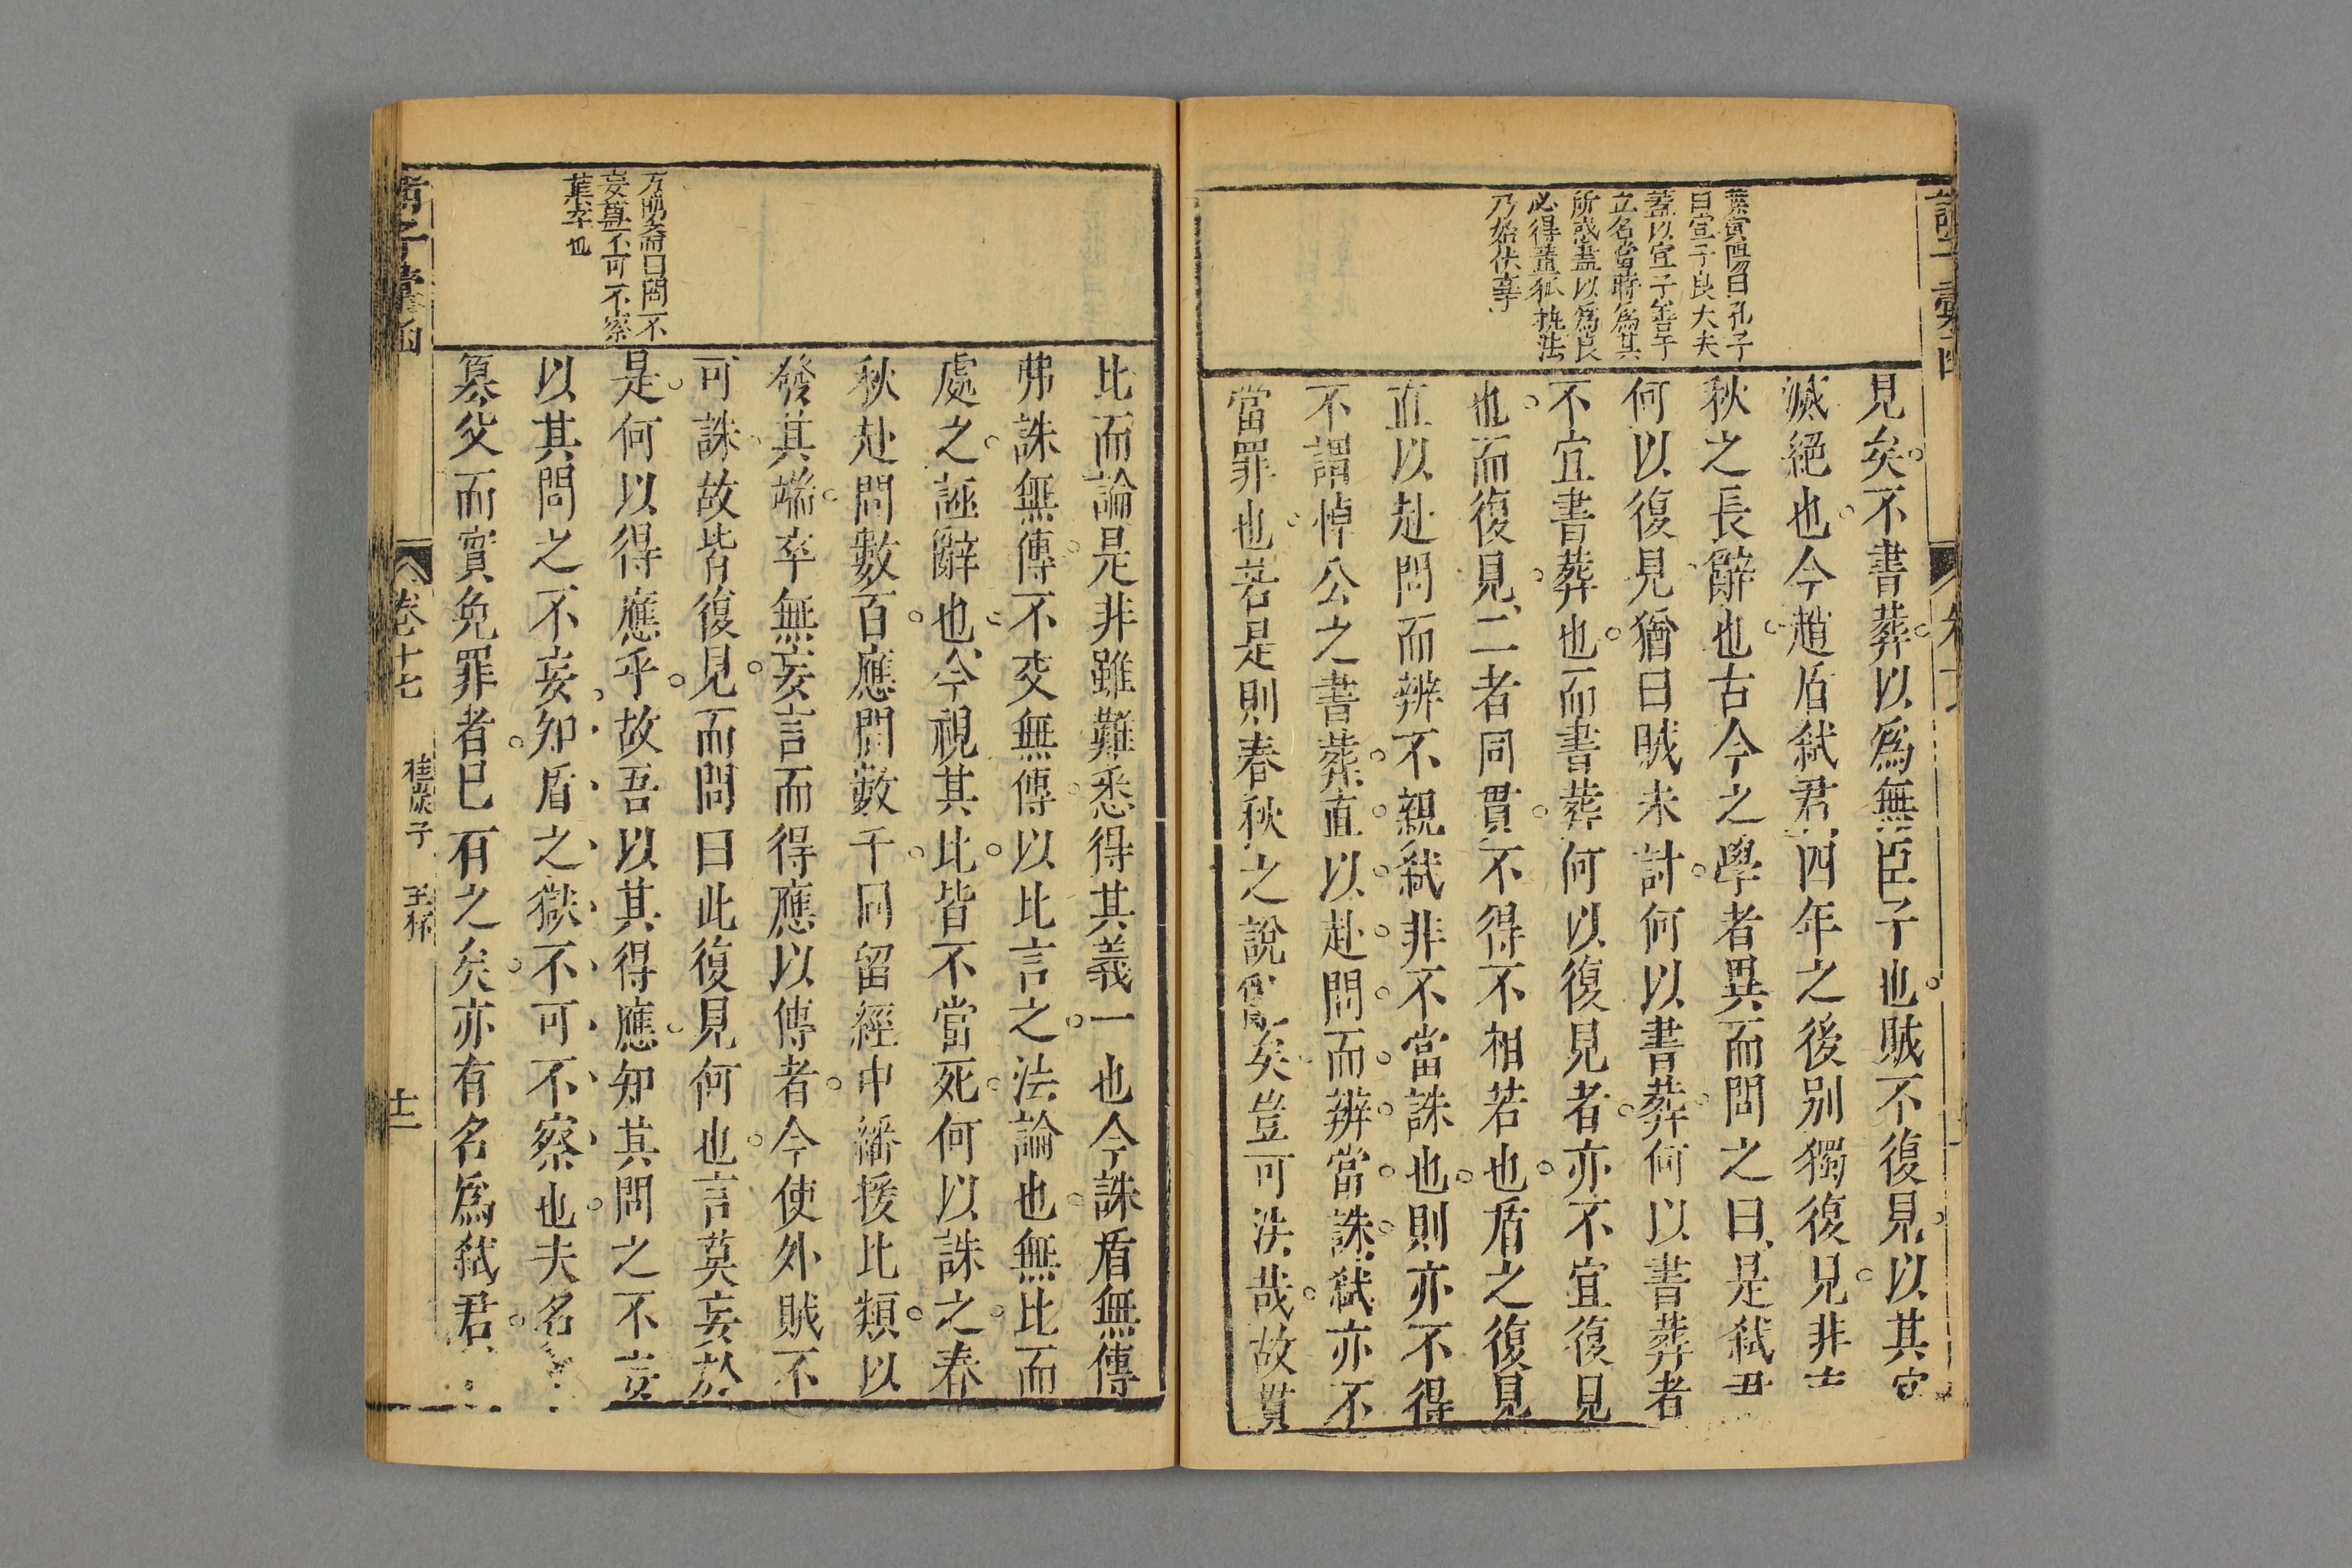 見矣不書葬以爲無臣子也賊不復見以其宜
滅絕也今趙盾弒君四年之後别獨復見非
秋之長辭也古今之學者異而問之曰是弒君
何以復見猶曰賊未討何以書葬何以書葬者
不宜書葬也而書葬何以復見者亦不宜復見
也而復見二者同貫不得不相若也盾之復見
直以赴問而辨不親弒非不當誅也則亦不得
不謂悼公之書葬直以赴問而辨當誅弒亦不
當罪也若是則春秋之說亂矣豈可法哉故貫
孔子
曰宣子良大夫
蓋以宣子善于
立名當時爲其
所惑蓋以爲良
必得董狐執法
乃始伏辜
比而論是非雖難悉得其義一也今誅盾無傳
弗誅無傳不交無傳以比言之法論也無比而
處之誣辭也今視其比皆不當死何以誅之春
秋赴問數百應問數千同留經中繙援比類以
發其端卒無妄言而得應以傳者今使外賊不
可誅故皆復見而問曰此復見何也言莫妄於
是何以得應乎故吾以其得應知其問之不妄
以其問之不妄知盾之獄不可不察也夫名
篡父而實免罪者已有之矣亦有名爲弒君
曰問不
妄獄不可不察
葉卒也
卷十七
桂巖子
玉杯
十二